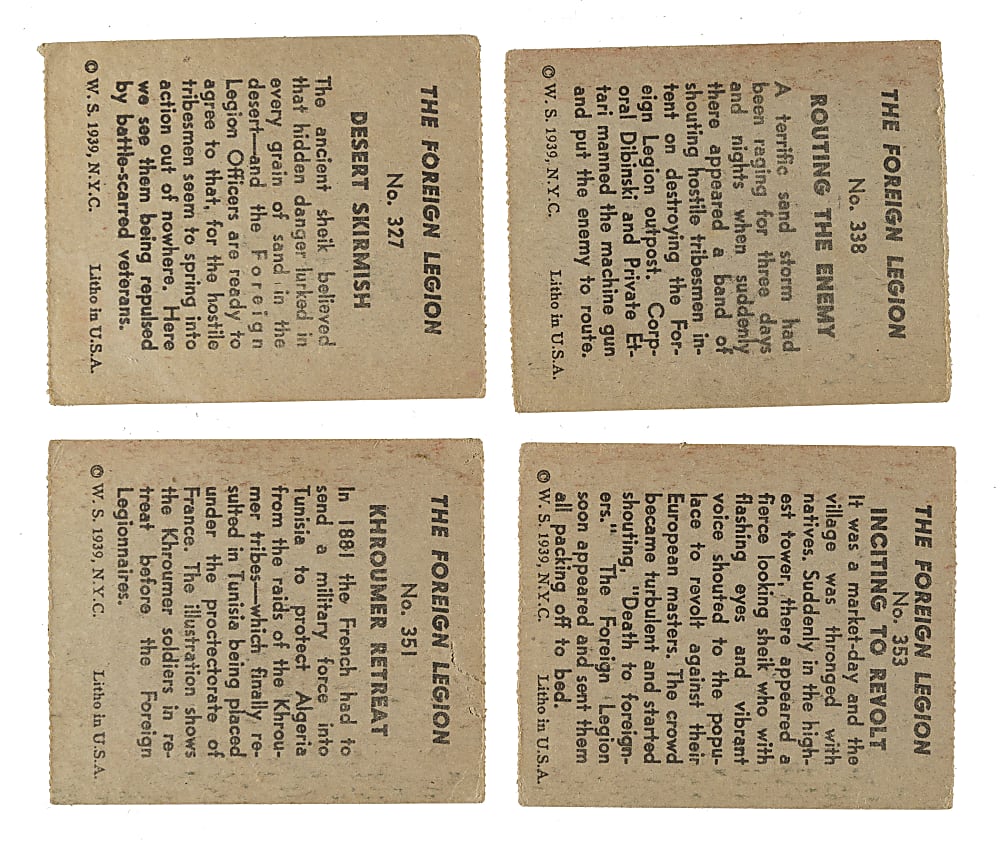 THE FOREIGN LEGION
No. 327
DESERT SKIRMISH
The ancient sheik believed
that hidden danger lurked in
every grain of sand in the
desert—and the Foreign
Legion Officers are ready to
agree to that, for the hostile
tribesmen seem to spring into
action out of nowhere. Here
we see them being repulsed
by battle-scarred veterans.
© W. S. 1939, N.Y.C. Litho in U.S.A.
THE FOREIGN LEGION
No. 338
ROUTING THE ENEMY
A terrific sand storm had
been raging for three days
and nights when suddenly
there appeared a band of
shouting hostile tribesmen in-
tent on destroying the For-
eign Legion outpost. Corp-
oral Dibinski and Private Et-
tari manned the machine gun
and put the enemy to route.
© W. S. 1939, N.Y.C. Litho in U.S.A.
THE FOREIGN LEGION
No. 351
KHROUMER RETREAT
In 1881 the French had to
send a military force into
Tunisia to protect Algeria
from the raids of the Khrou-
mer tribes—which finally re-
sulted in Tunisia being placed
under the proctectorate of
France. The illustration shows
the Khroumer soldiers in re-
treat before the Foreign
Legionnaires.
© W. S. 1939, N.Y.C. Litho in U.S.A.
THE FOREIGN LEGION
No. 353
INCITING TO REVOLT
It was a market-day and the
village was thronged with
natives. Suddenly in the high-
est tower, there appeared a
fierce looking sheik who with
flashing eyes and vibrant
voice shouted to the popu-
lace to revolt against their
European masters. The crowd
became turbulent and started
shouting, "Death to foreign-
ers." The Foreign Legion
soon appeared and sent them
all packing off to bed.
© W. S. 1939, N.Y.C. Litho in U.S.A.